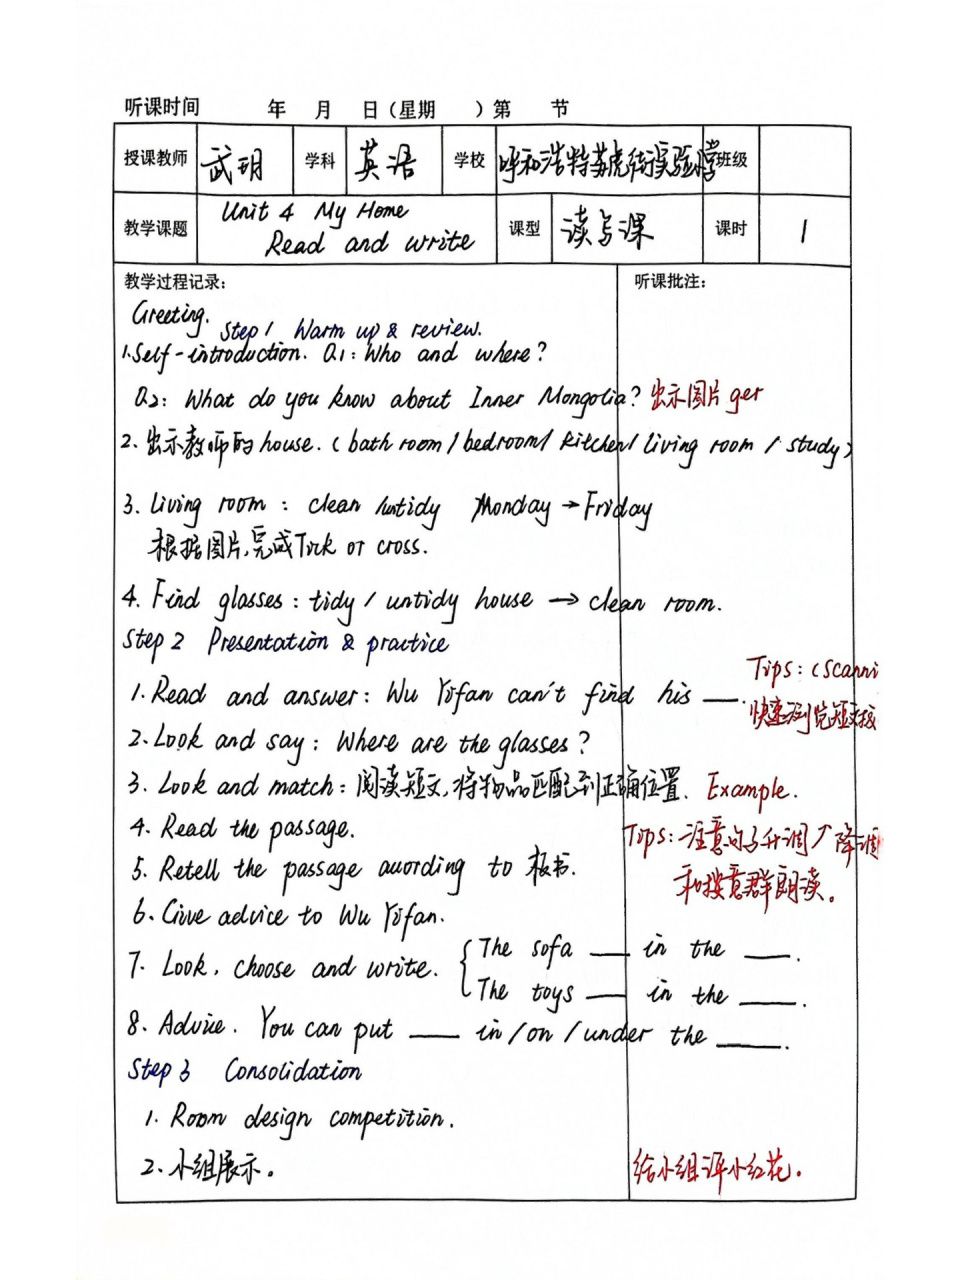 听课时间 年 月 日（星期 ）第 节
授课教师 武玥 学科 英语 学校 呼和浩特苏虎街实验小学 班级
教学课题 Unit 4 My Home
Read and write 课型 读写课 课时 1
教学过程记录： 听课批注：
Greeting.
Step 1 Warm up & review.
1.Self-introduction. Q.1: Who and where?
Q.2: What do you know about Inner Mongolia? 出示图片 ger
2.出示教师的house.(bathroom/bedroom/kitchen/living room/study)
3. Living room: clean untidy Monday→Friday
根据图片,完成Tick or cross.
4. Find glasses: tidy/untidy house → clean room.
Step 2 Presentation & practice
Tips: (Scanni
1.Read and answer: Wu Yifan can't find his ___.
快速浏览短文
2.Look and say: Where are the glasses?
3. Look and match: 阅读短文,将物品匹配到正确位置. Example.
4. Read the passage.
Tips: 注意句子升调↗降调
5. Retell the passage auording to 板书.
和按意群朗读。
6. Give advice to Wu Yifan.
7. Look, choose and write. { The sofa ___ in the ___.
The toys ___ in the ___.
8. Advice. You can put ___ in/on/under the ___.
Step 3 Consolidation
1. Room design competition.
2. 小组展示。 给小组评小红花。